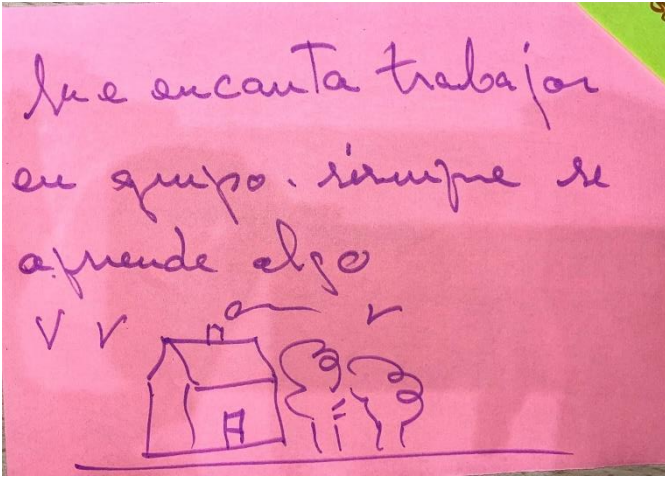 Me encanta trabajar
en grupo. siempre se
aprende algo